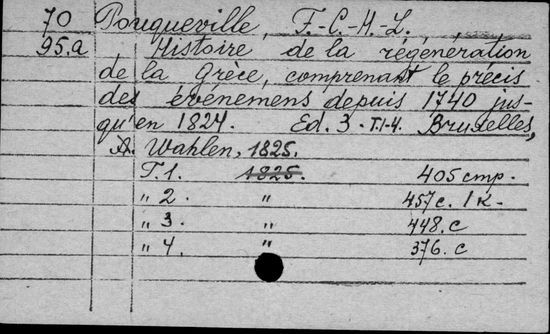 70 Pouqueville, F.-C.-H.-L.
95.a Histoire de la régénération
de la Grèce, comprenant le précis
des événemens depuis 1740 jus-
qu'en 1824. Ed. 3. T.1-4. Bruxelles,
A. Wahlen, 1825.
T. 1. 1825. 405 cmp.
„ 2. „ 457 c. 1 к.
„ 3. „ 448. c
„ 4. „ 376. c